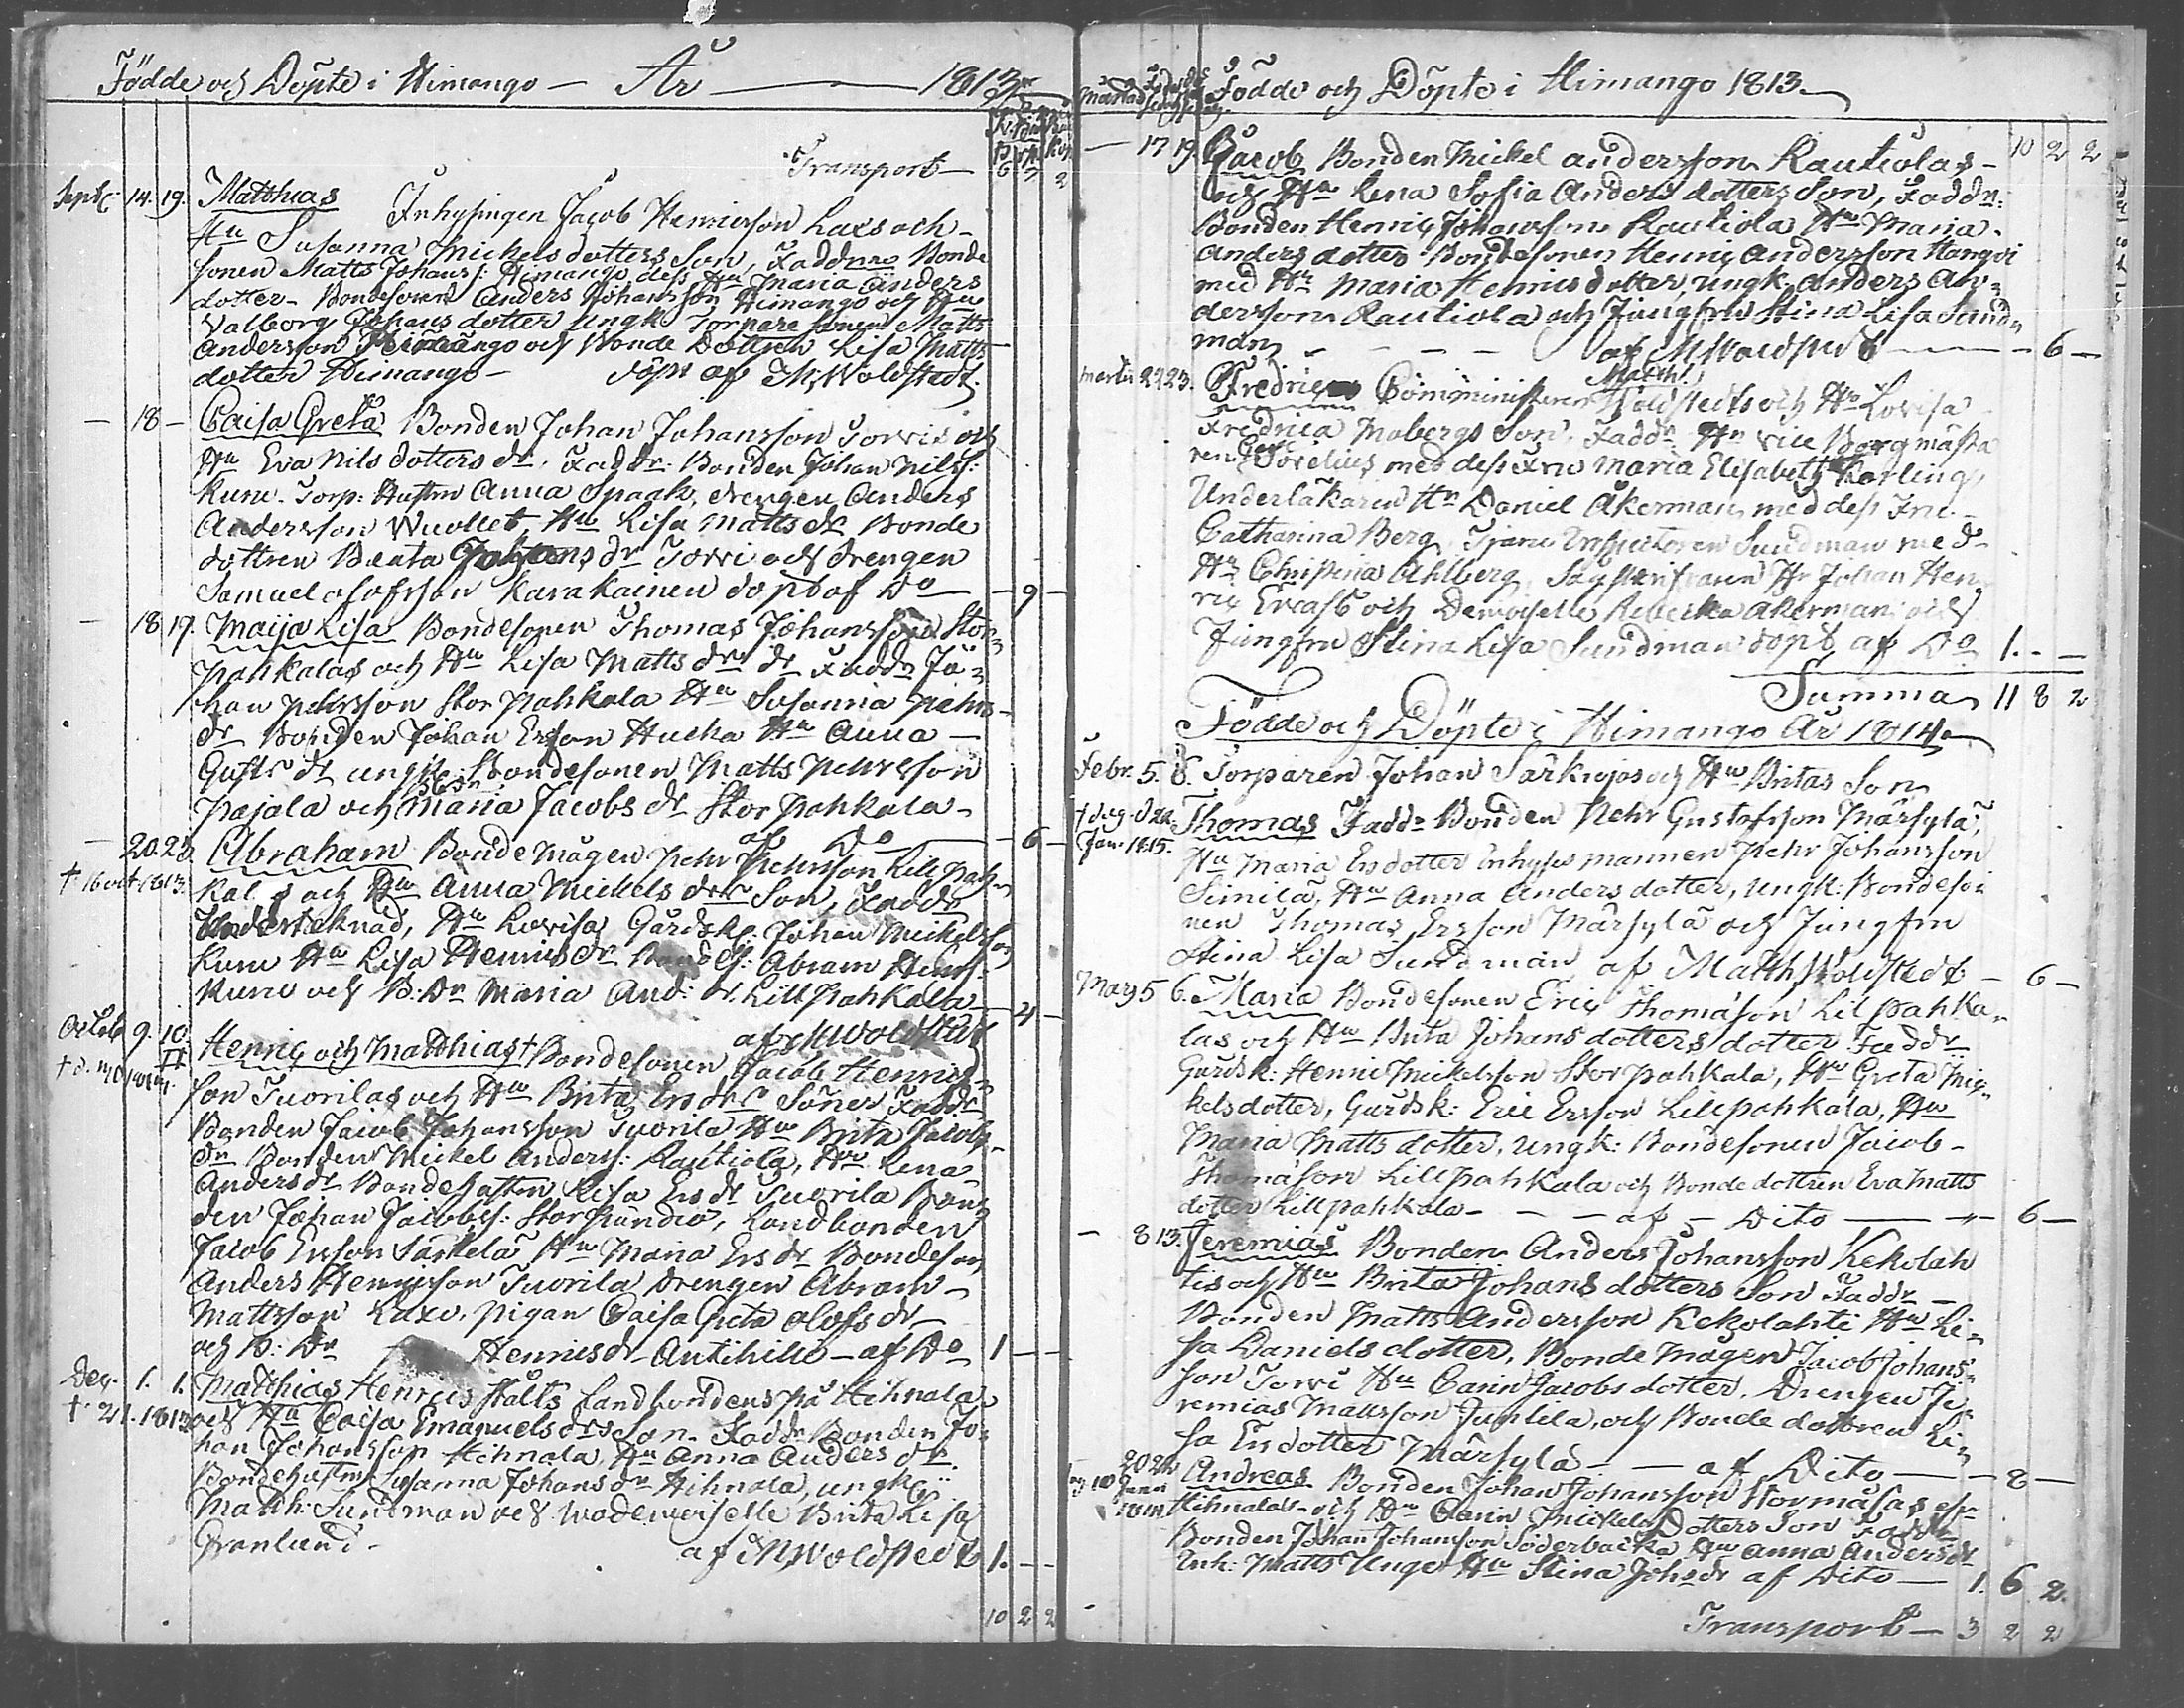 Födde och Döpte i Himango — År — 1813
Transport — 6 3 2
Sept. 14. 19. Matthias Inhysingen Jacob Henricsson Laxo och
Hu Susanna Mickelsdotters Son, Faddrar Bonde
sonen Matts Johanss: Himango dess Hu Maria Anders
dotter - Bondesonen Anders Johansson Himango och Hu
Valborg Johansdotter ungk. Torpare sonen Matts
Andersson Himango och Bonde Dottren Lisa Matts
dotter Himango - döpt af M: Woldstedt.
— 18 — Caisa Greta Bonden Johan Johansson Torvis och
Hu Eva Nils dotters dr. Faddr: Bonden Johan Nilss:
Kune. Torp: Hustru Anna Spaak, drengen Anders
Andersson Wuollet, Hu Lisa Matts dr Bonde
dottren Beata Johans dr Torvi och drengen
Samuel Olofsson Karakainen döpt af Do — 9 —
— 18 19. Maija Lisa Bondesonen Thomas Johansson Stor
pahkalas och Hu Lisa Matts drs dr Faddr Jo-
han Pehrsson Stor pahkala Hu Susanna Pehrs
dr Bonden Johan Ersson Hucka Hu Anna —
Gustf dr ungk: Bondesonen Matts Pehrsson
Pajala och Maria Jacobs dr Stor pahkala —
af Do — 6 —
— 20. 23. Abraham Bonde mågen Pehr Pehrsson Lill pah-
† 16 oct 1813. kal s och Hu Anna Mickels drs Son, Faddr
Underteknad, Hu Lovisa, Gårdsk: Johan Mickelsson
Kune Hu Lisa Henrics dr Abram Henrs:
Kune och B: Dr Maria And: dr. Lill pahkala — 4 —
af M Woldstedt
Octob 9. 10. Henric och Matthias † Bondesonen Jacob Henrics
son Tuorilas och Hu Brita Ers drs Söner Faddr
Bonden Jacob Johansson Tuorila Hu Brita Jacobs
dr Bonden Mickel Anderss: Rautiola, Hu Lena
Anders dr Bondehustru Lisa Ers dr Tuorila Bon
den Johan Jacobss: Storhundio, Landbonden
Jacob Ersson Särkelä Hu Maria Ers dr Bondeson
Anders Henricsson Tuorila drengen Abram —
Mattsson Laxo, pigan Caisa Greta Olofs dr
och B: Dr Henrics dr Antihiliu — af Do 1 — —
Dec. 1. 1. Matthias Henrics Ståhls Landbondens på Hihnala
† 21. 1813 och Hu Caisa Emanuels drs Son. Faddr Bonden Jo-
han Johansson Hihnala, Hu Anna Anders dr.
Bondehustru Susanna Johans dr Hihnala, ungk:
Matth: Sundman och Mademoiselle Brita Lisa
Granlund - af M Woldstedt 1. — —
10 2 2
Månad Födde och Döpte i Himango 1813.
— 17 19. Jacob Bonden Mickel Andersson Rautiolas — 10 2 2
och Hu Lena Sofia Anders dotters Son, Faddr:
Bonden Henric Johansson Rautiola Hu Maria
Anders dotter Bondesonen Henric Andersson Hangvi
med Hu Maria Henrics dotter, ungk. Anders An-
dersson Rautiola och Jungfru Stina Lisa Sund-
man — — — — af M Woldstedt — 6 —
Martii 22 23. Fredric Comministeren Matth: Woldstedts och Hu Lovisa
Fredrica Mobergs Son, Faddr Hr vice Borgmästa
ren Sovelius med dess Fru Maria Elisabeth Karling,
Underläkaren Hr Daniel Åkerman med dess Fru
Catharina Berg, Tjäru Inspectoren Sundman med
Hu Christina Ahlberg, Sagskrifvaren Hr Johan Hen
ric Ervast och Demoiselle Rebecka Åkerman och
Jungfru Stina Lisa Sundman döpt af Do 1. — —
Summa 11 8 2
Födde och Döpte i Himango År 1814.
Febr. 5. 8. Torparen Johan Särkiojas och Hu Britas Son
† dag. d 20. Thomas Faddr Bonden Pehr Gustafsson Märsylä,
Jan. 1815. Hu Maria Ersdotter Inhyses mannen Pehr Johansson
Similä, Hu Anna Anders dotter, ungk: Bondeso
nen Thomas Ersson Märsylä och Jungfru
Stina Lisa Sundman af Matth Woldstedt — 6 —
May 5 6. Maria Bondesonen Eric Thomasson Lillpahka
las och Hu Brita Johans dotters dotter Faddr
Gårdsk: Henric Mickelsson Stor pahkala, Hu Greta Mic
kelsdotter, Gårdsk: Eric Ersson Lillpahkala, Hu
Maria Matts dotter, ungk: Bondesonen Jacob
Thomasson Lillpahkala och Bonde dottren Eva Matts
dotter Lillpahkala — — — af — Dito — 6 —
— 8 13. Jeremias Bonden Anders Johansson Kekolah
tis och Hu Brita Johans dotters Son Faddr —
Bonden Matts Andersson Kekolahti Hu Li-
sa Daniels dotter, Bonde Mågen Jacob Johans-
son Torvi Hu Carin Jacobs dotter. Drengen Je-
remias Mattsson Juntila, och Bonde dottren Li-
sa Ersdotter Märsylä — — af Dito — 8 —
20 22 Andreas Bonden Johan Johansson Stormåsas
Hihnalas och Hu Carin Mickels Dotters Son Faddr
Bonden Johan Johansson Söderbacka Hu Anna Anders dr
Inh: Matts Unge Hu Stina Johs dr af Dito — 1. 6 2.
Transport — 3 2 2